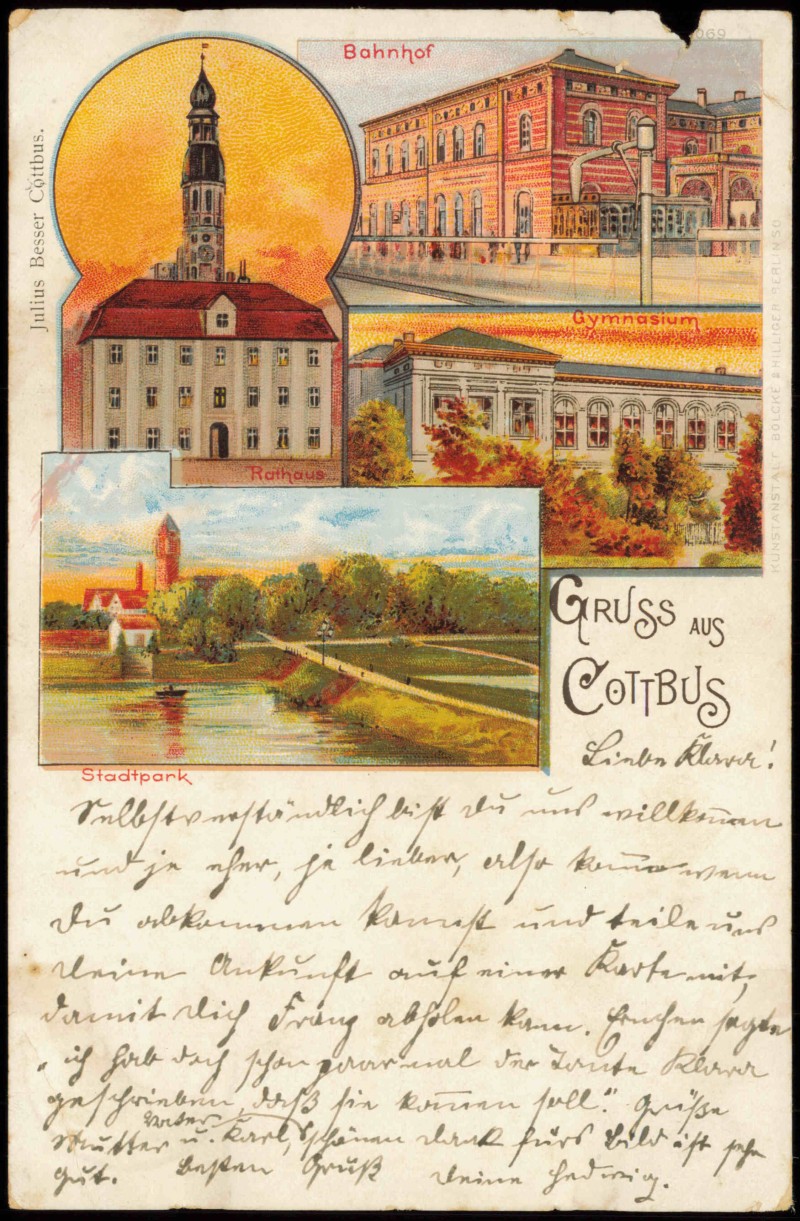 069
Bahnhof
Julius Besser Cottbus.
Gymnasium
Rathaus
KUNSTANSTALT BOLCKE & HILLIGER BERLIN SO
GRUSS AUS
COTTBUS
Stadtpark
Liebe Klara!
Selbstverständlich bist Du uns willkom̄en
und je eher, je lieber, also kom̄e wenn
Du abkommen kannst und teile uns
Deine Ankunft auf einer Karte mit,
damit Dich Franz abholen kann. sagte
„ich hab doch schon paarmal der Tante Klara
geschrieben, daß sie kom̄en soll." Grüße
Vater
Mutter u. Karl, Schönen Dank fürs Bild ist sehr
gut. Besten Gruß Deine Hedwig.